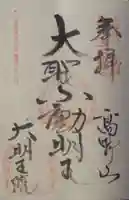 奉拝
高野山
大聖不動明王
大明王院